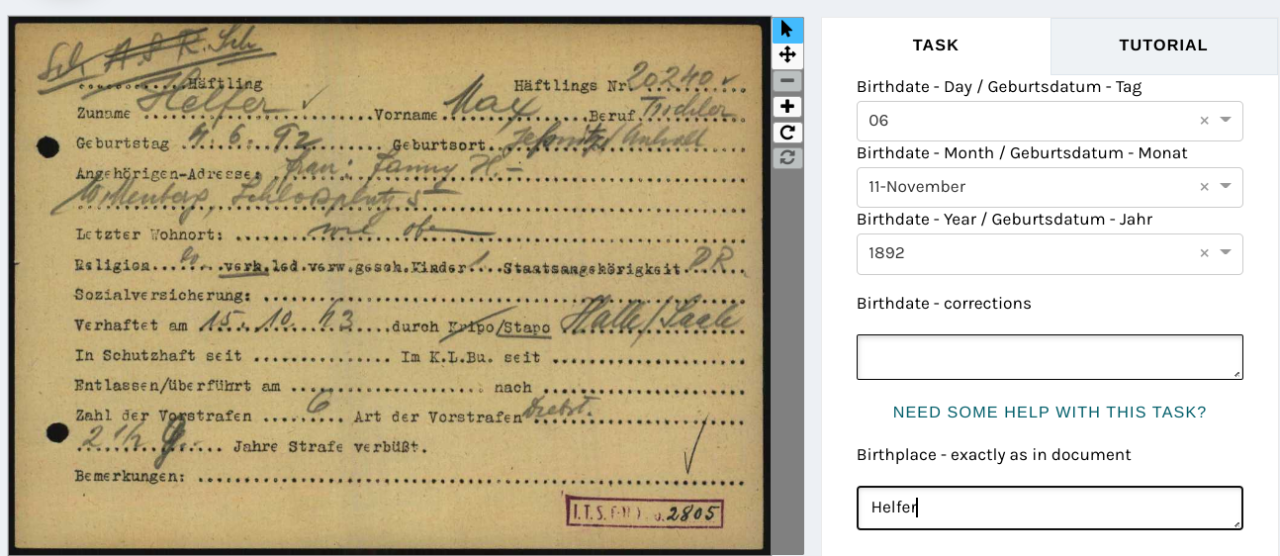 Sch. A S R. Sch
Häftling Häftlings Nr 20240
Zuname Helfer Vorname Max Beruf Tischler
Geburtstag 4. 6. 92 Geburtsort Jeßnitz/Anhalt
Angehörigen-Adresse: Frau: Fanny H.-
Wittenberg, Schloßplatz 5
Letzter Wohnort: wie oben
Religion verh.led.verw.gesch.Kinder 1 Staatsangehörigkeit DR.
Sozialversicherung:
Verhaftet am 15. 10. 43 durch Kripo/Stapo Halle/Saale
In Schutzhaft seit Im K.L.Bu. seit
Entlassen/überführt am nach
Zahl der Vorstrafen 6 Art der Vorstrafen Diebst.
2 1/2 Jahre Strafe verbüßt.
Bemerkungen:
I.T.S. 2805
TASK
TUTORIAL
Birthdate - Day / Geburtsdatum - Tag
06
Birthdate - Month / Geburtsdatum - Monat
11-November
Birthdate - Year / Geburtsdatum - Jahr
1892
Birthdate - corrections
NEED SOME HELP WITH THIS TASK?
Birthplace - exactly as in document
Helfer